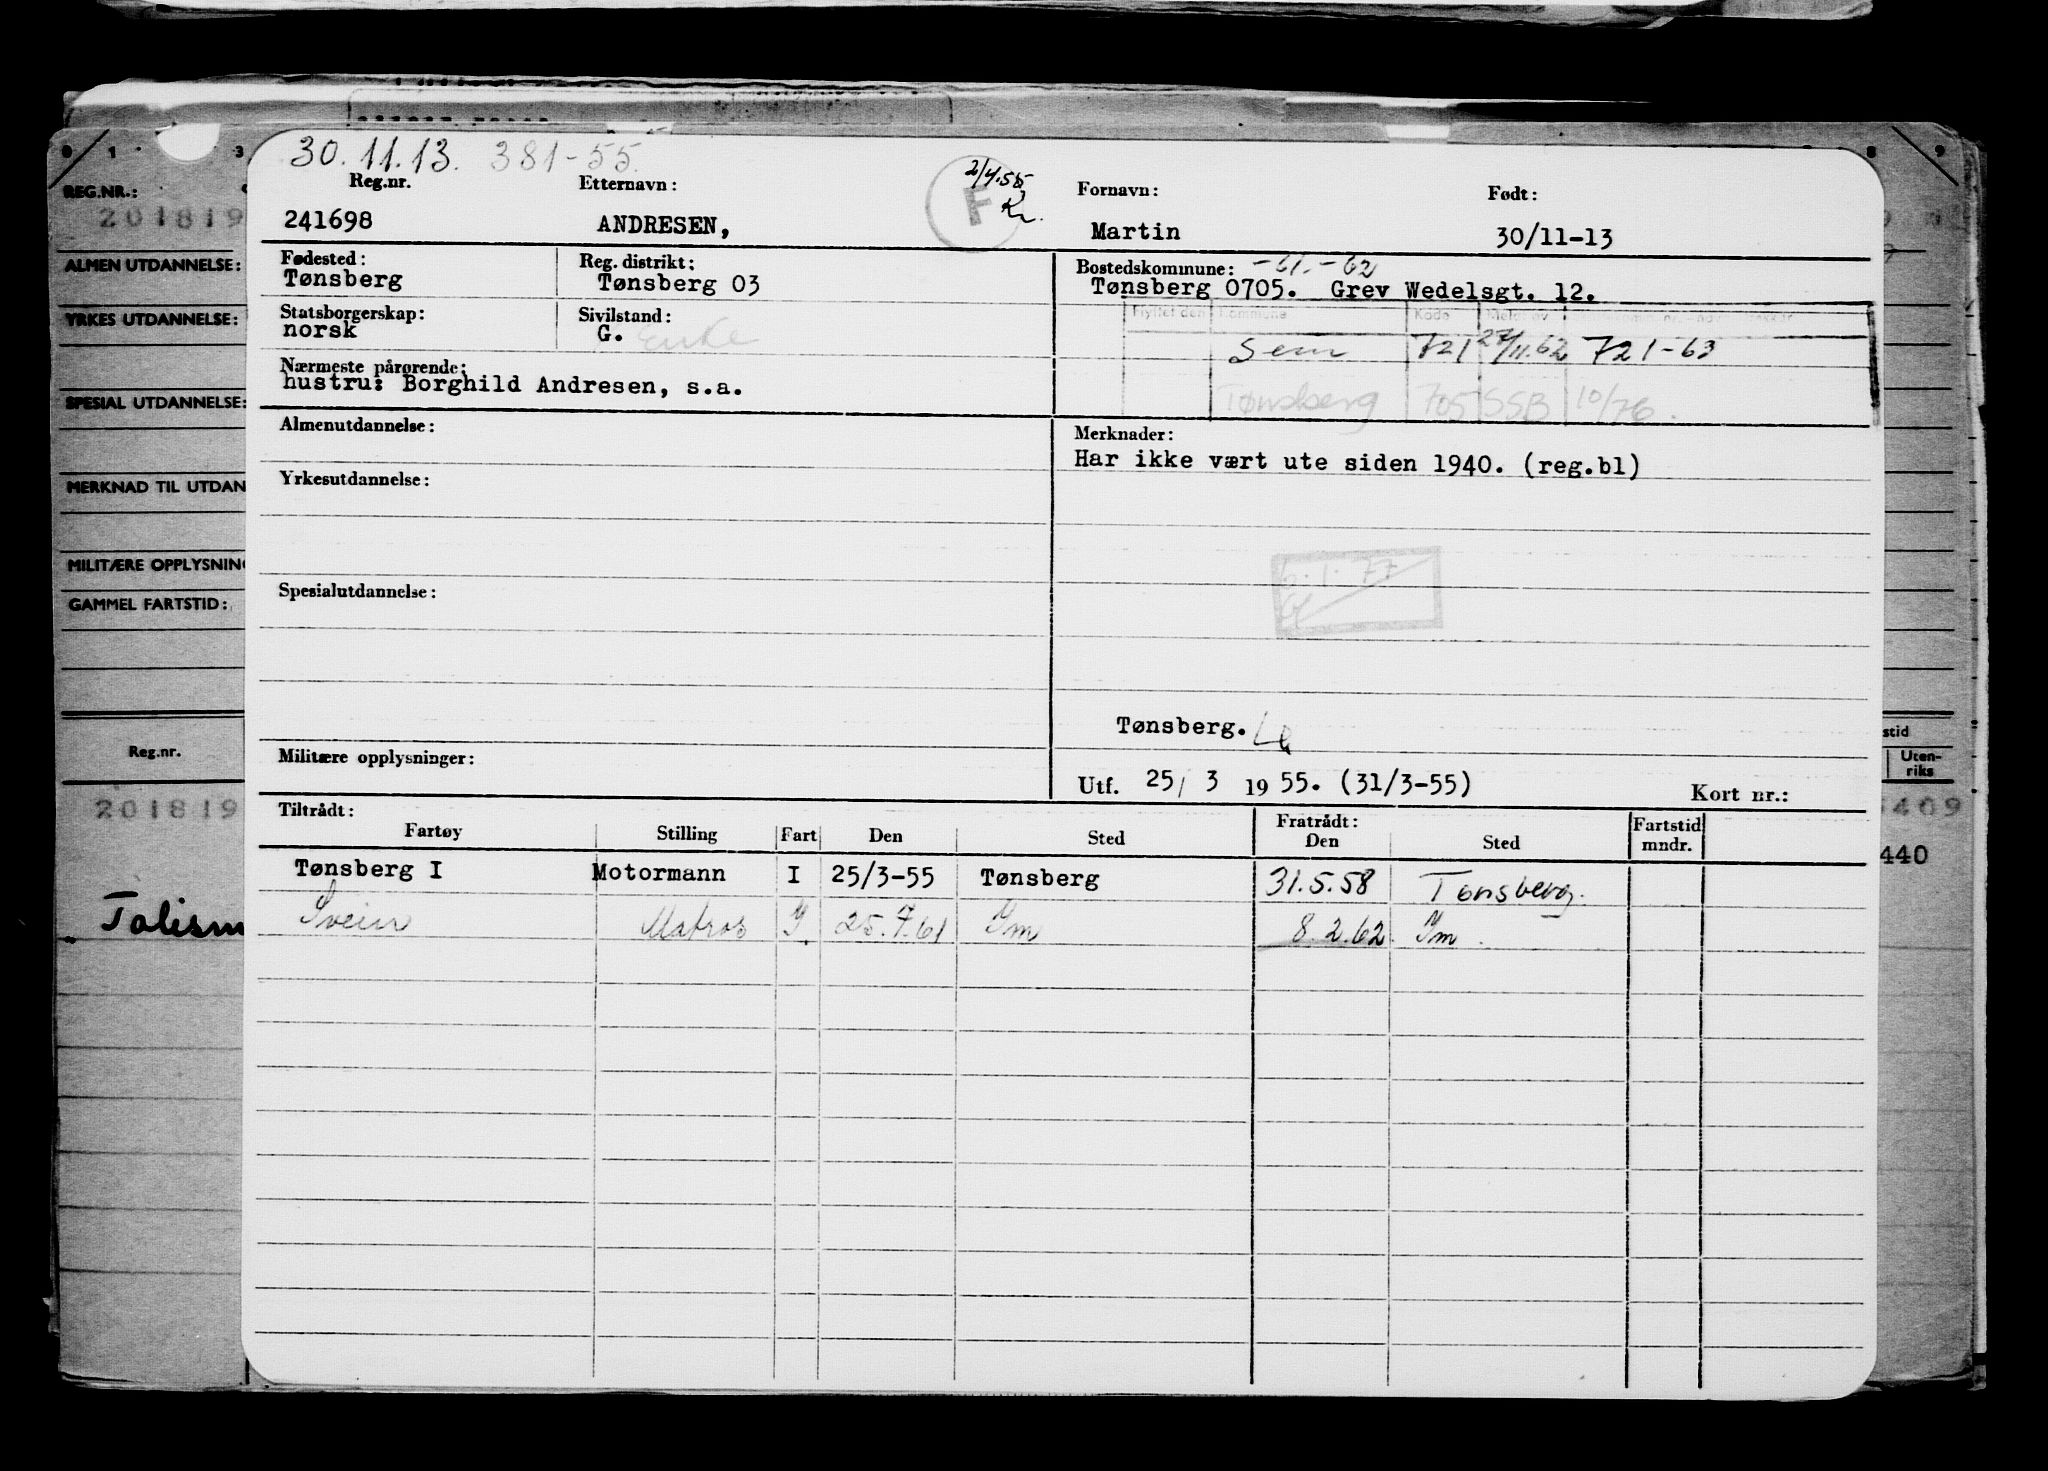 30.11.13. 381-55.
2/4.55
F
Kr.
Reg.nr. Etternavn: Fornavn: Født:
241698 ANDRESEN, Martin 30/11-13
Fødested: Reg. distrikt: Bostedskommune: -61.-62
Tønsberg Tønsberg 03 Tønsberg 0705. Grev Wedelsgt. 12.
Statsborgerskap: Sivilstand: Flyttet den Kommune Kode
norsk G. Enke Sem 721 27/11.62 721-63
Nærmeste pårørende:
hustru: Borghild Andresen, s.a. Tønsberg 705 SSB 10/76.
Almenutdannelse: Merknader:
Har ikke vært ute siden 1940. (reg.bl)
Yrkesutdannelse:
Spesialutdannelse:
6.1.77
Tønsberg.
Militære opplysninger:
Utf. 25/ 3 1955. (31/3-55) Kort nr.:
Tiltrådt: Fratrådt:
Fartøy Stilling Fart Den Sted Den Sted Fartstid mndr.
Tønsberg I Motormann I 25/3-55 Tønsberg 31.5.58 Tønsberg.
Svein Matros I 25.7.61 Ym 8.2.62 Ym.
0 1 3 8 9
REG.NR.:
201819
ALMEN UTDANNELSE:
YRKES UTDANNELSE:
SPESIAL UTDANNELSE:
MERKNAD TIL UTDAN
MILITÆRE OPPLYSNIN
GAMMEL FARTSTID:
Reg.nr.
201819
Talism
stid
Uten-
riks
409
440